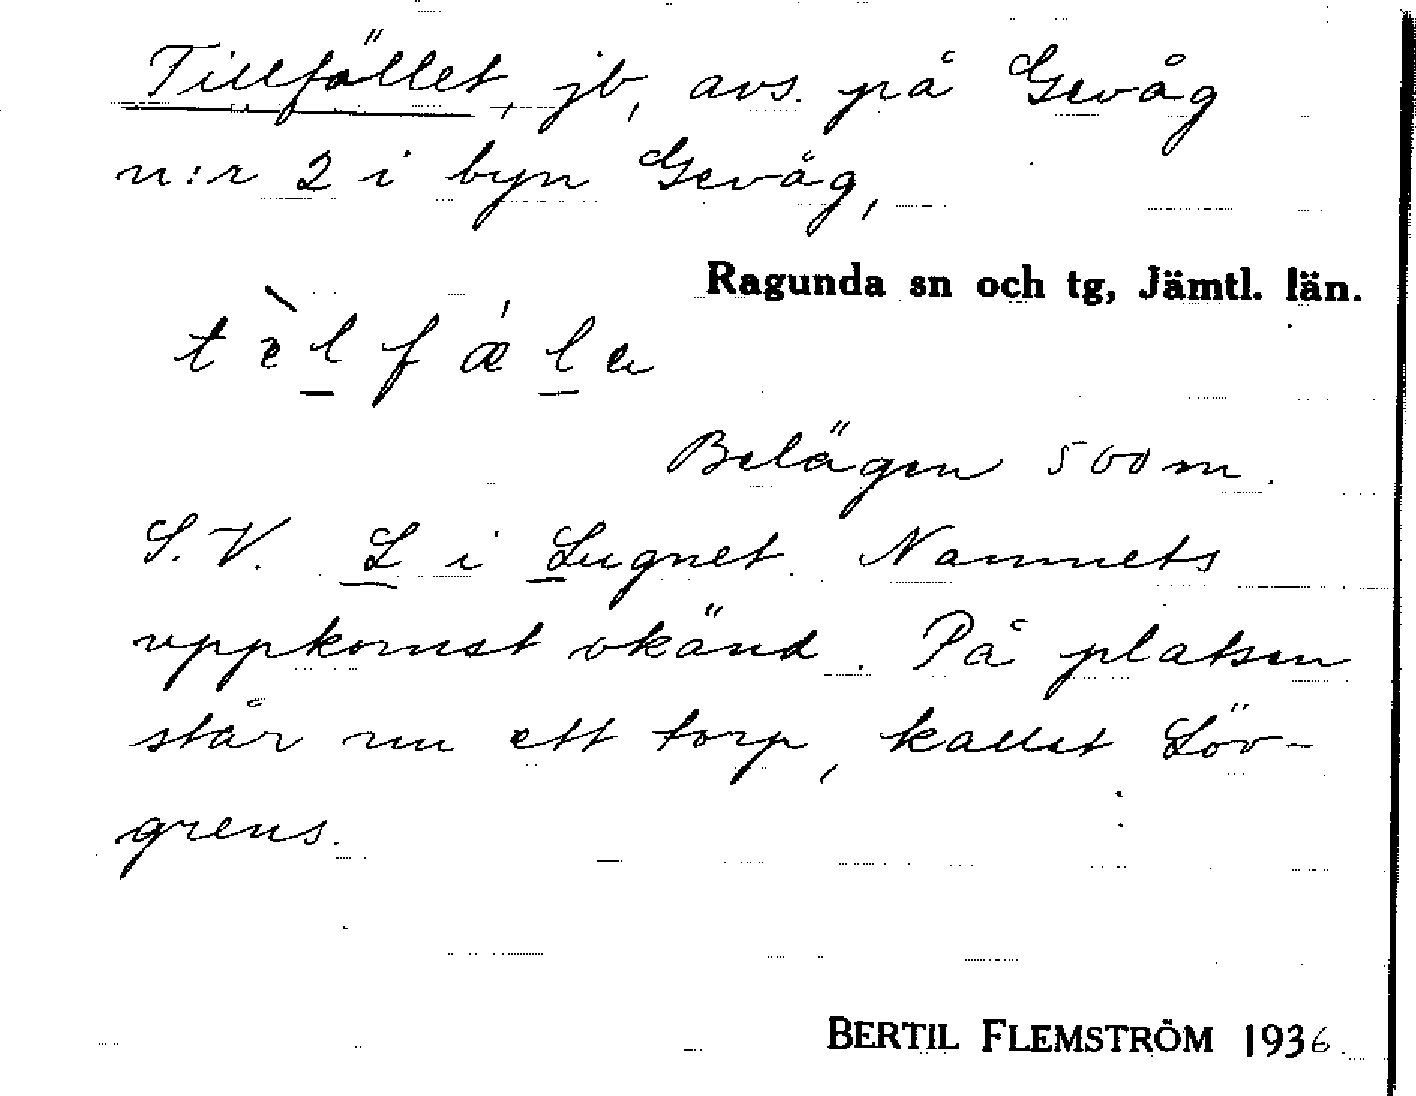 Tillfället, jb, avs. på Gevåg
n:r 2 i byn Gevåg,
Ragunda sn och tg, Jämtl. län.
t è l f ǽ l a
Belägen 500 m.
S.V. L i Lugnet. Namnets
uppkomst okänd. På platsen
står nu ett torp, kallat Löv-
grens.
BERTIL FLEMSTRÖM 1936.